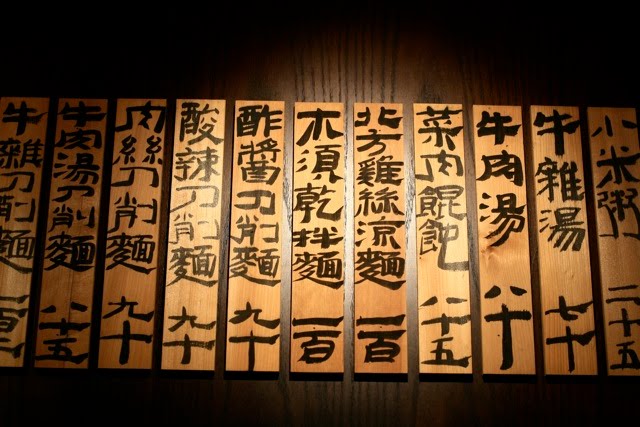 小米粥 二十五
牛雜湯 七十
牛肉湯 八十
菜肉餛飩 八十五
北方雞絲涼麵 一百
木須乾拌麵 一百
酢醬刀削麵 九十
酸辣刀削麵 九十
肉絲刀削麵 九十
牛肉湯刀削麵 八十五
牛雜刀削麵 一百